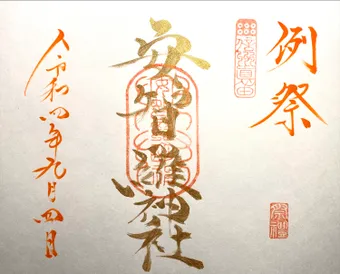 例祭
安智羅神社
令和四年九月四日